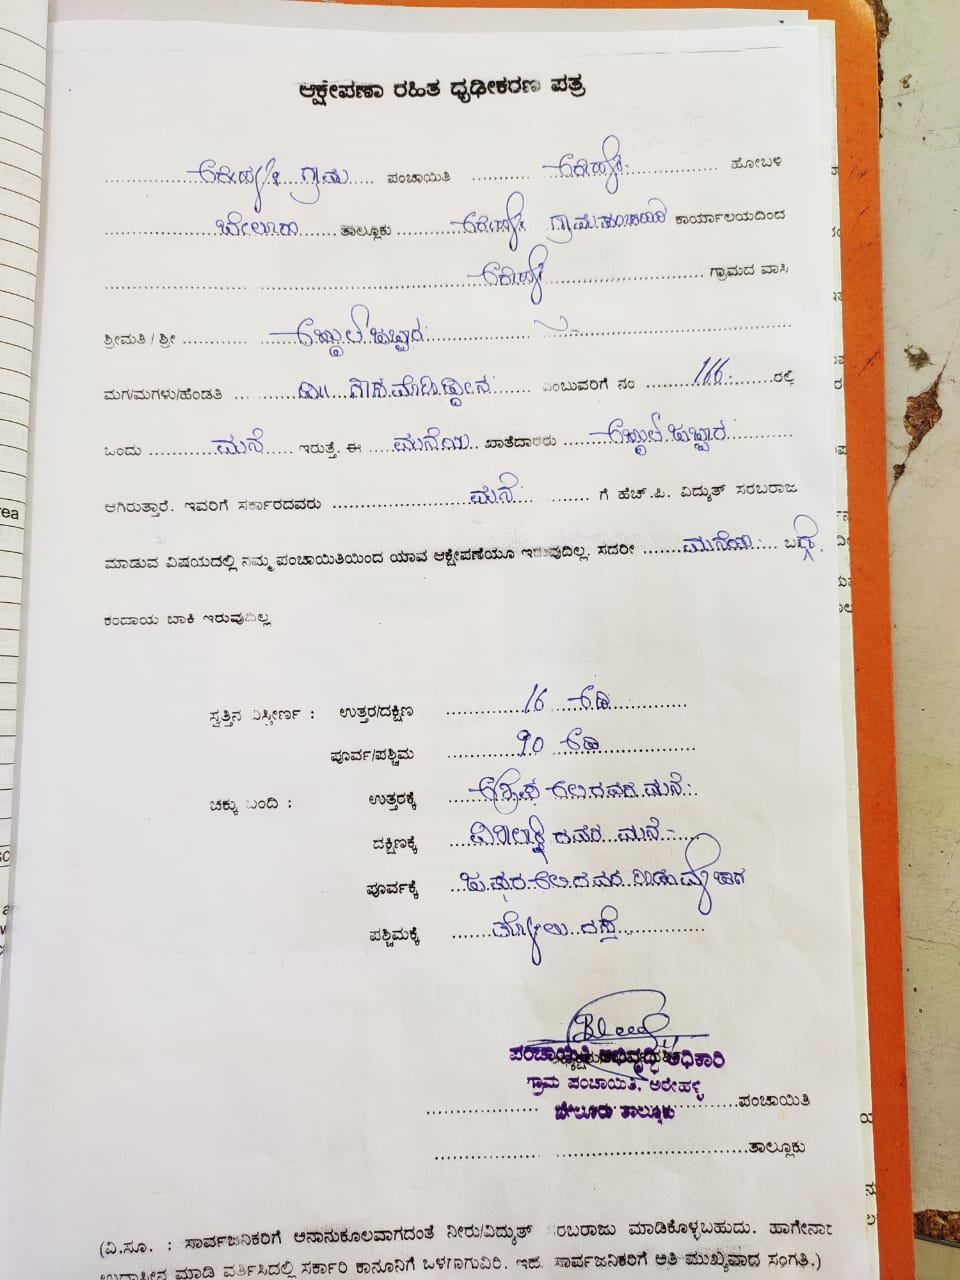 ಆಕ್ಷೇಪಣಾ ರಹಿತ ಧೃಢೀಕರಣ ಪತ್ರ
ಅರೇಹಳ್ಳಿ ಗ್ರಾಮ ಪಂಚಾಯಿತಿ ಅರೇಹಳ್ಳಿ ಹೋಬಳಿ
ಬೇಲೂರು ತಾಲ್ಲೂಕು ಅರೇಹಳ್ಳಿ ಗ್ರಾಮ ಪಂಚಾಯಿತಿ ಕಾರ್ಯಾಲಯದಿಂದ
ಅರೇಹಳ್ಳಿ ಗ್ರಾಮದ ವಾಸಿ
ಶ್ರೀಮತಿ / ಶ್ರೀ ಅಬ್ದುಲ್ ಜಬ್ಬಾರ್
ಮಗ/ಮಗಳು/ಹೆಂಡತಿ ಎಂಬುವರಿಗೆ ನಂ 166 ರಲ್ಲಿ
ಒಂದು ಮನೆ ಇರುತ್ತೆ ಈ ಮನೆಯ ಖಾತೆದಾರರು ಅಬ್ದುಲ್ ಜಬ್ಬಾರ್
ಆಗಿರುತ್ತಾರೆ. ಇವರಿಗೆ ಸರ್ಕಾರದವರು ಮನೆ ಗೆ ಹೆಚ್.ಪಿ. ವಿದ್ಯುತ್ ಸರಬರಾಜ
ಮಾಡುವ ವಿಷಯದಲ್ಲಿ ನಮ್ಮ ಪಂಚಾಯಿತಿಯಿಂದ ಯಾವ ಆಕ್ಷೇಪಣೆಯೂ ಇರುವುದಿಲ್ಲ. ಸದರೀ ಮನೆಯ ಬಗ್ಗೆ
ಕಂದಾಯ ಬಾಕಿ ಇರುವುದಿಲ್ಲ
ಸ್ವತ್ತಿನ ವಿಸ್ತೀರ್ಣ : ಉತ್ತರ/ದಕ್ಷಿಣ 16 ಅಡಿ
ಪೂರ್ವ/ಪಶ್ಚಿಮ 90 ಅಡಿ
ಚಕ್ಕು ಬಂದಿ : ಉತ್ತರಕ್ಕೆ ಅಲಿ ರವರ ಮನೆ
ದಕ್ಷಿಣಕ್ಕೆ ರವರ ಮನೆ
ಪೂರ್ವಕ್ಕೆ ಅಲಿ ರವರ ಜಾಗ
ಪಶ್ಚಿಮಕ್ಕೆ ರಸ್ತೆ
ಪಂಚಾಯಿತಿ ಅಭಿವೃದ್ಧಿ ಅಧಿಕಾರಿ
ಗ್ರಾಮ ಪಂಚಾಯಿತಿ, ಅರೇಹಳ್ಳಿ
ಬೇಲೂರು ತಾಲ್ಲೂಕು ಪಂಚಾಯಿತಿ
ತಾಲ್ಲೂಕು
(ವಿ.ಸೂ. : ಸಾರ್ವಜನಿಕರಿಗೆ ಅನಾನುಕೂಲವಾಗದಂತೆ ನೀರು/ವಿದ್ಯುತ್ ಸರಬರಾಜು ಮಾಡಿಕೊಳ್ಳಬಹುದು. ಹಾಗೇನಾ
ಉದಾಸೀನ ಮಾಡಿ ವರ್ತಿಸಿದಲ್ಲಿ ಸರ್ಕಾರಿ ಕಾನೂನಿಗೆ ಒಳಗಾಗುವಿರಿ. ಇದು ಸಾರ್ವಜನಿಕರಿಗೆ ಅತಿ ಮುಖ್ಯವಾದ ಸಂಗತಿ.)